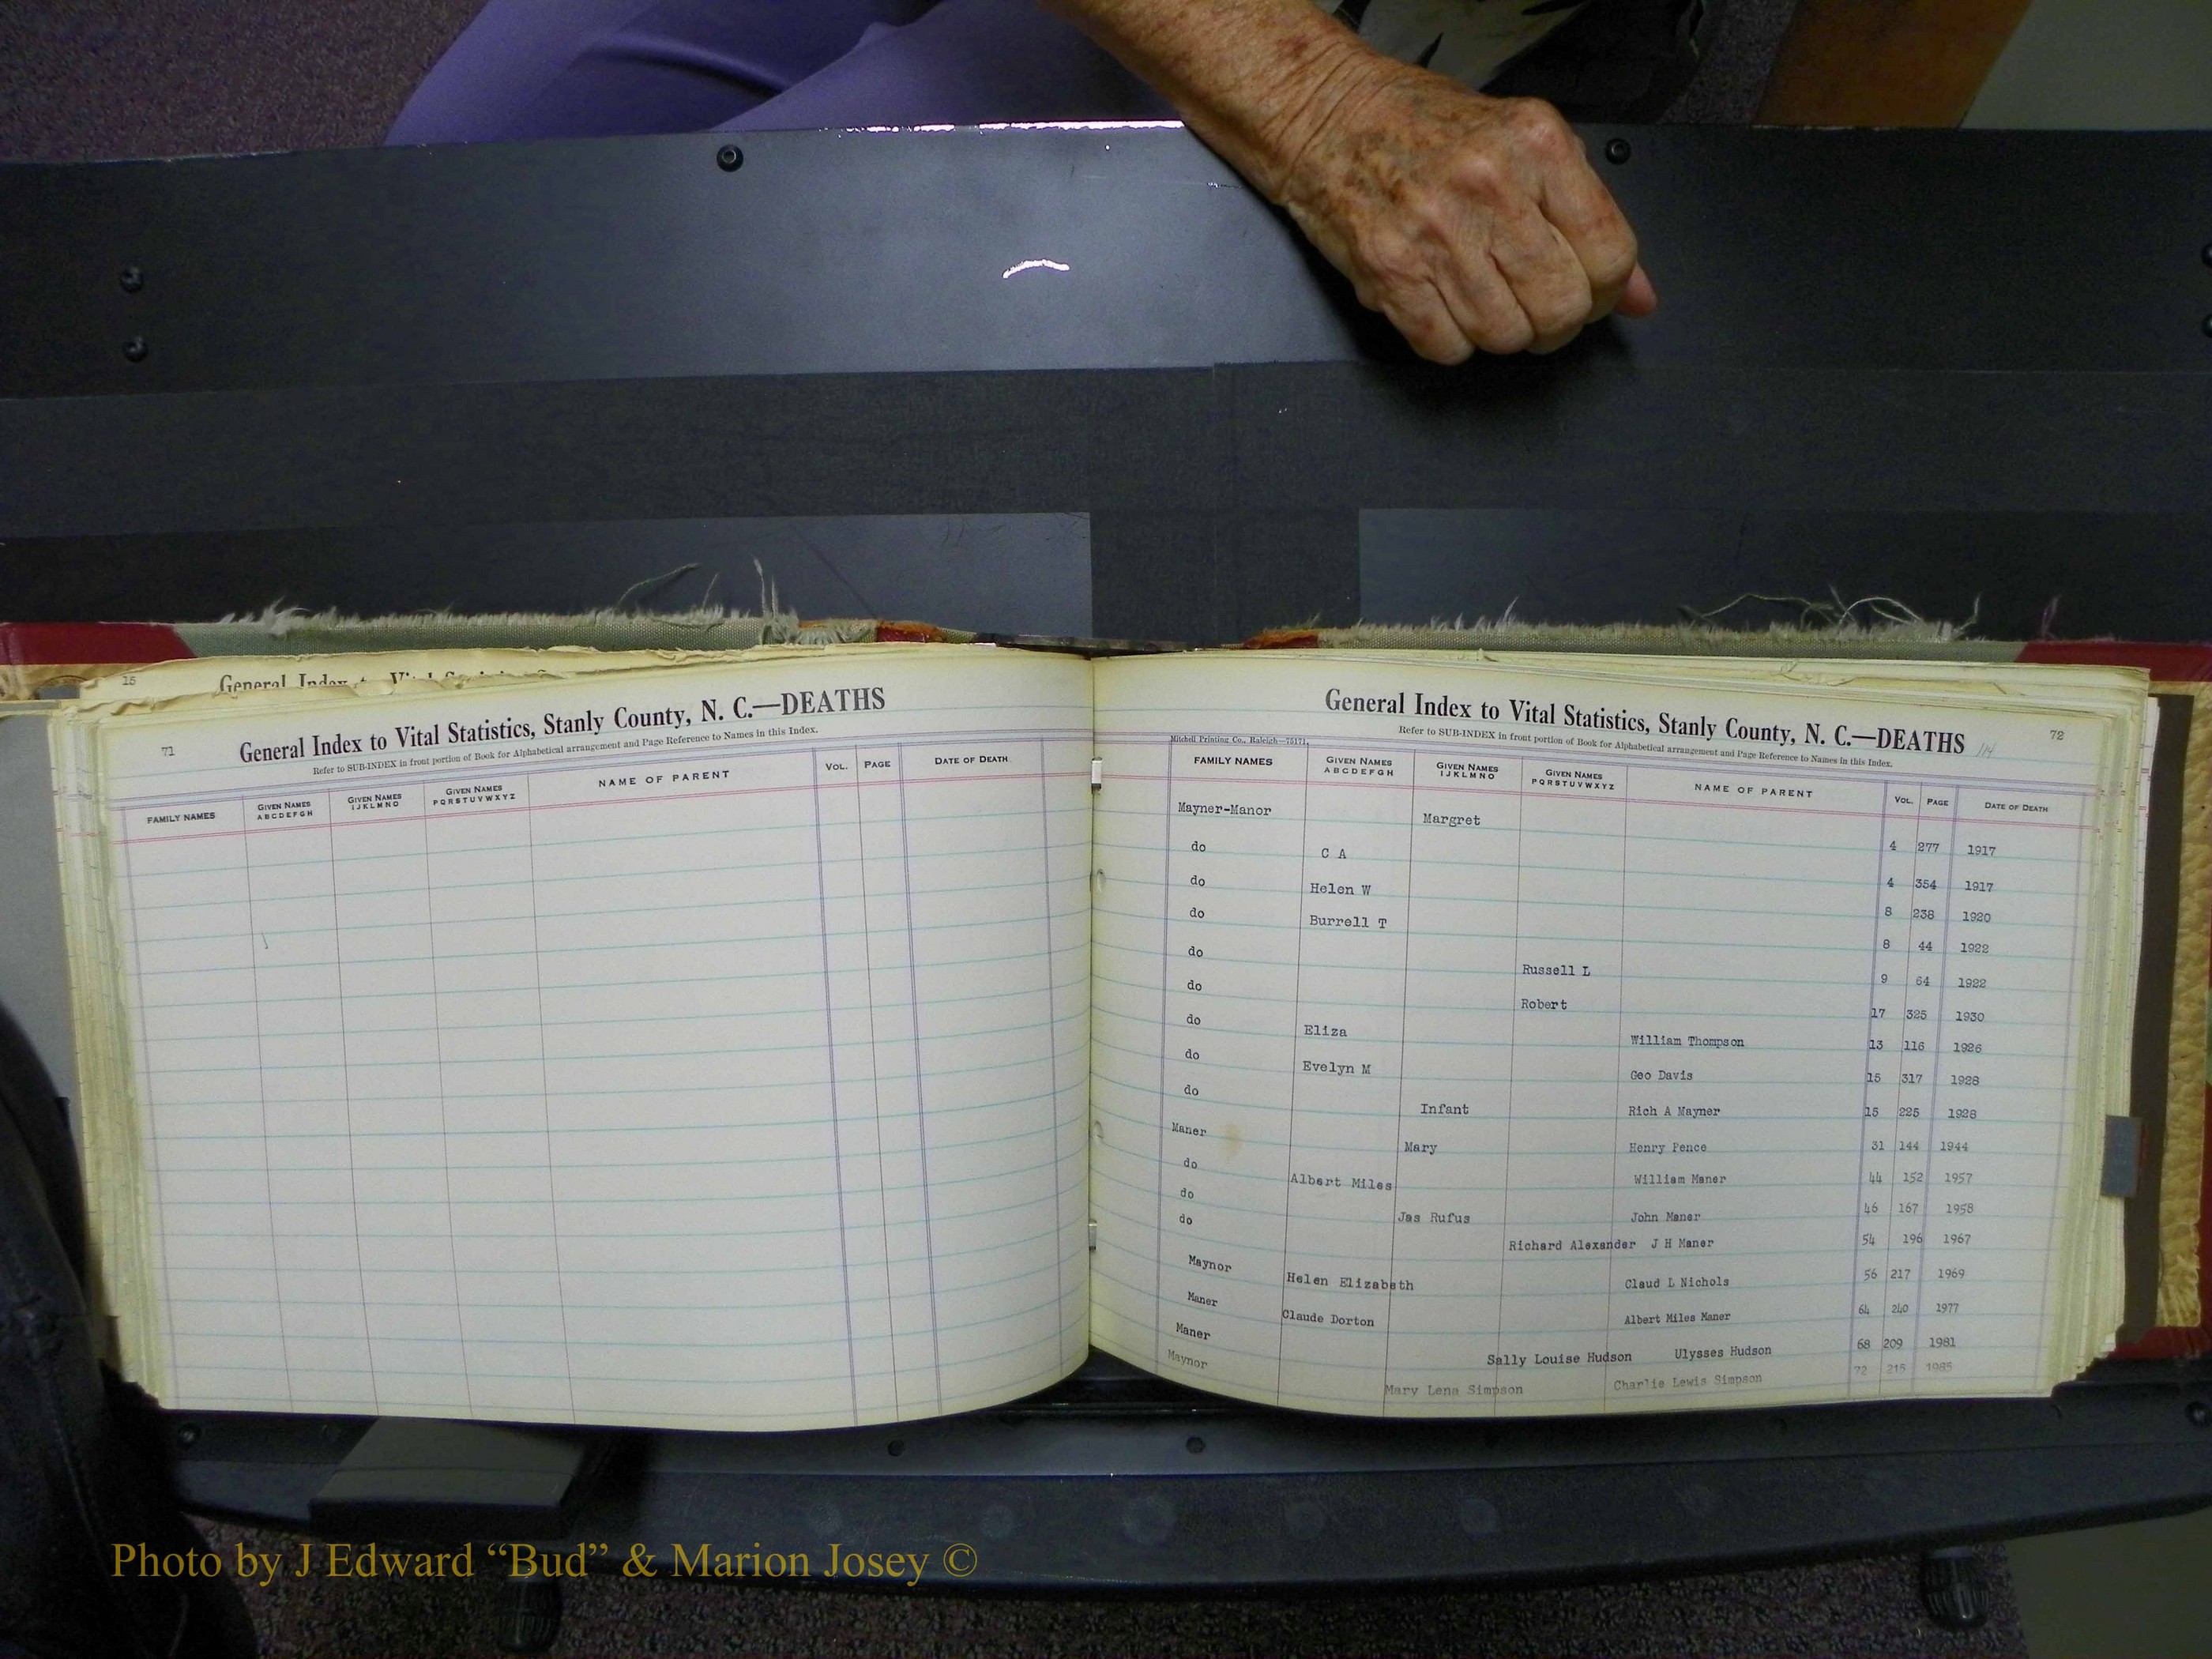 15
General Index
71
General Index to Vital Statistics, Stanly County, N. C.—DEATHS
Refer to SUB-INDEX in front portion of Book for Alphabetical arrangement and Page Reference to Names in this Index.
FAMILY NAMES GIVEN NAMES ABCDEFGH GIVEN NAMES IJKLMNO GIVEN NAMES PQRSTUVWXYZ NAME OF PARENT VOL. PAGE DATE OF DEATH
General Index to Vital Statistics, Stanly County, N. C.—DEATHS
72
Refer to SUB-INDEX in front portion of Book for Alphabetical arrangement and Page Reference to Names in this Index.
Mitchell Printing Co., Raleigh—75171.
FAMILY NAMES GIVEN NAMES ABCDEFGH GIVEN NAMES IJKLMNO GIVEN NAMES PQRSTUVWXYZ NAME OF PARENT VOL. PAGE DATE OF DEATH
Mayner-Manor Margret 4 277 1917
do C A 4 354 1917
do Helen W 8 238 1920
do Burrell T 8 44 1922
do Russell L 9 64 1922
do Robert 17 325 1930
do Eliza William Thompson 13 116 1926
do Evelyn M Geo Davis 15 317 1928
do Infant Rich A Mayner 15 225 1928
Maner Mary Henry Pence 31 144 1944
do Albert Miles William Maner 44 152 1957
do Jas Rufus John Maner 46 167 1958
do Richard Alexander J H Maner 54 196 1967
Maynor Helen Elizabeth Claud L Nichols 56 217 1969
Maner Claude Dorton Albert Miles Maner 64 240 1977
Maner Sally Louise Hudson Ulysses Hudson 68 209 1981
Maynor Mary Lena Simpson Charlie Lewis Simpson 72 215 1985
Photo by J Edward “Bud” & Marion Josey ©